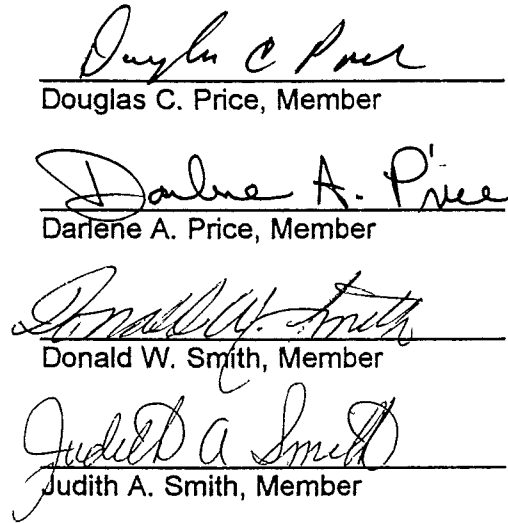 Douglas C Price
Douglas C. Price, Member
Darlene A. Price
Darlene A. Price, Member
Donald W. Smith
Donald W. Smith, Member
Judith A Smith
Judith A. Smith, Member